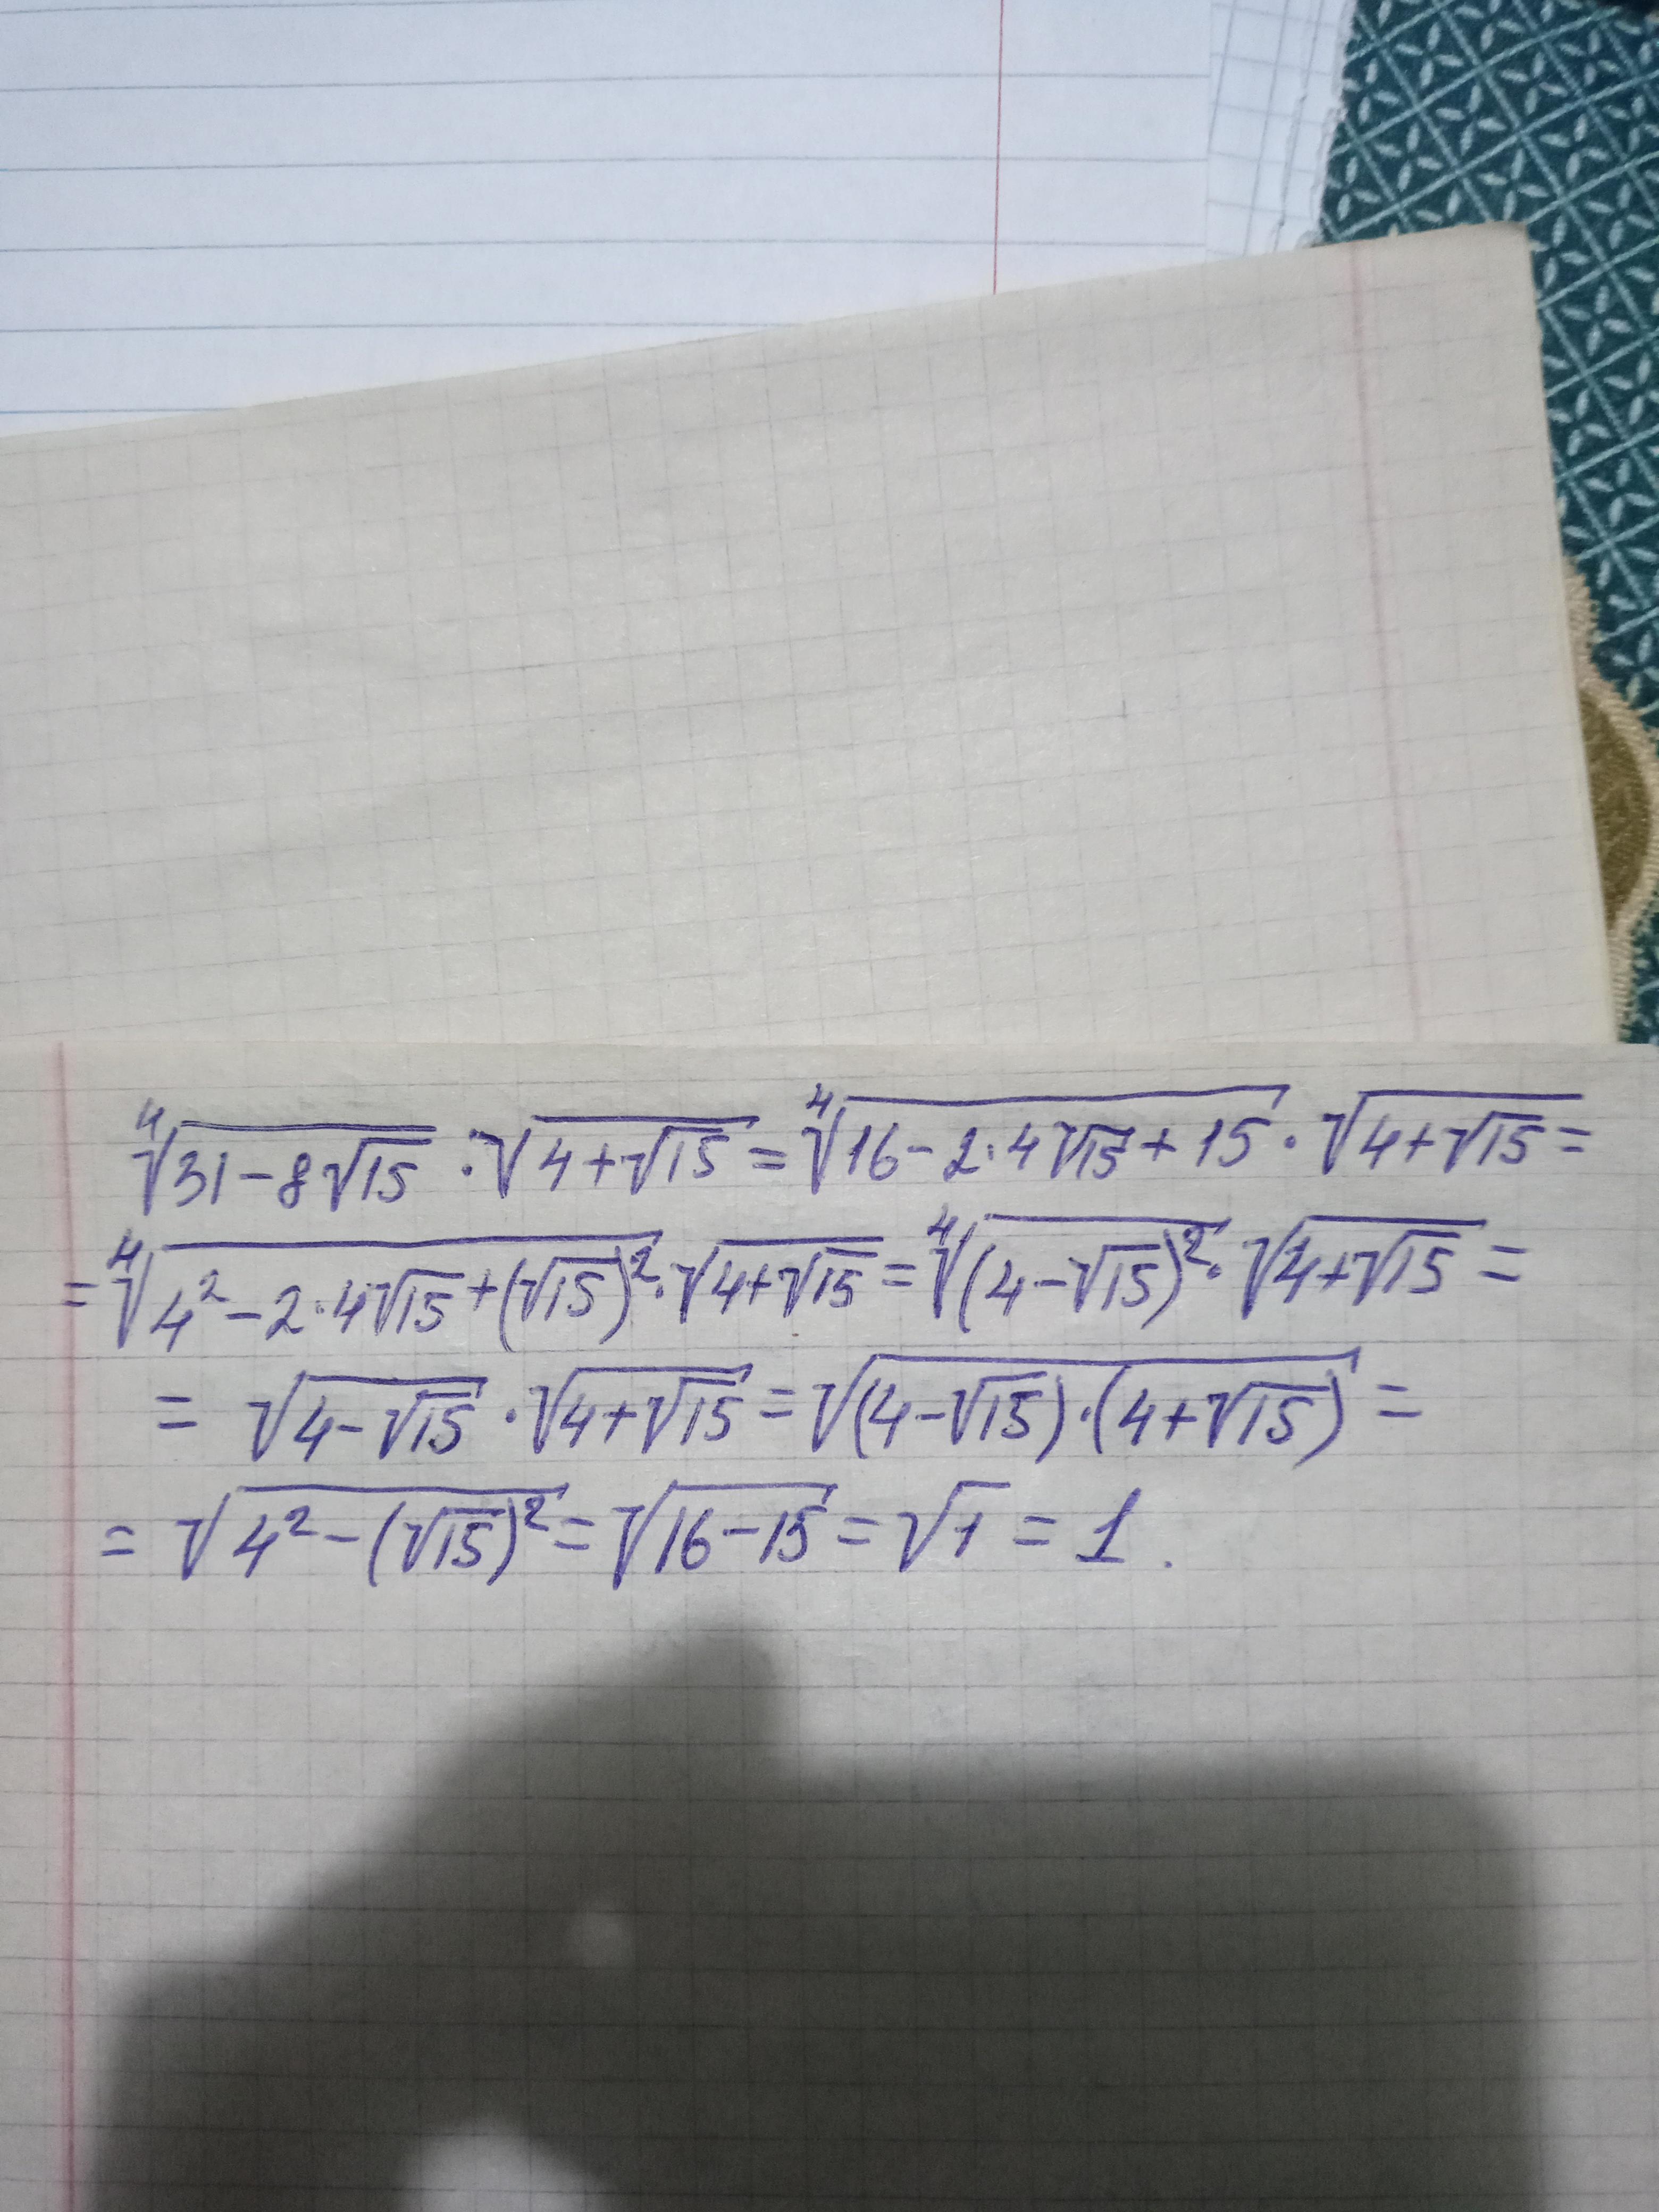 ⁴√(31-8√15) · √(4+√15) = ⁴√(16-2·4√15+15) · √(4+√15) =
= ⁴√(4²-2·4√15+(√15)²) · √(4+√15) = ⁴√((4-√15)²) · √(4+√15) =
= √(4-√15) · √(4+√15) = √((4-√15)·(4+√15)) =
= √(4²-(√15)²) = √(16-15) = √1 = 1.